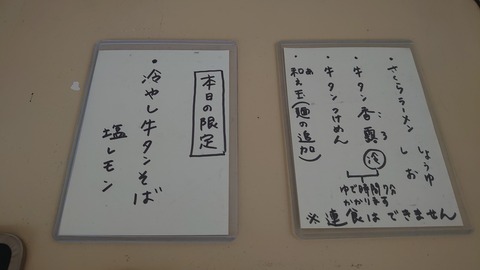 ・さくらラーメン しょうゆ
しお
・牛タン香露 : 3
冷
・牛タンつけめん
ゆで時間 7分
かかります
・和え玉(麺の追加)
あ
※連食はできません
本日の限定
・冷やし牛タンそば
塩レモン